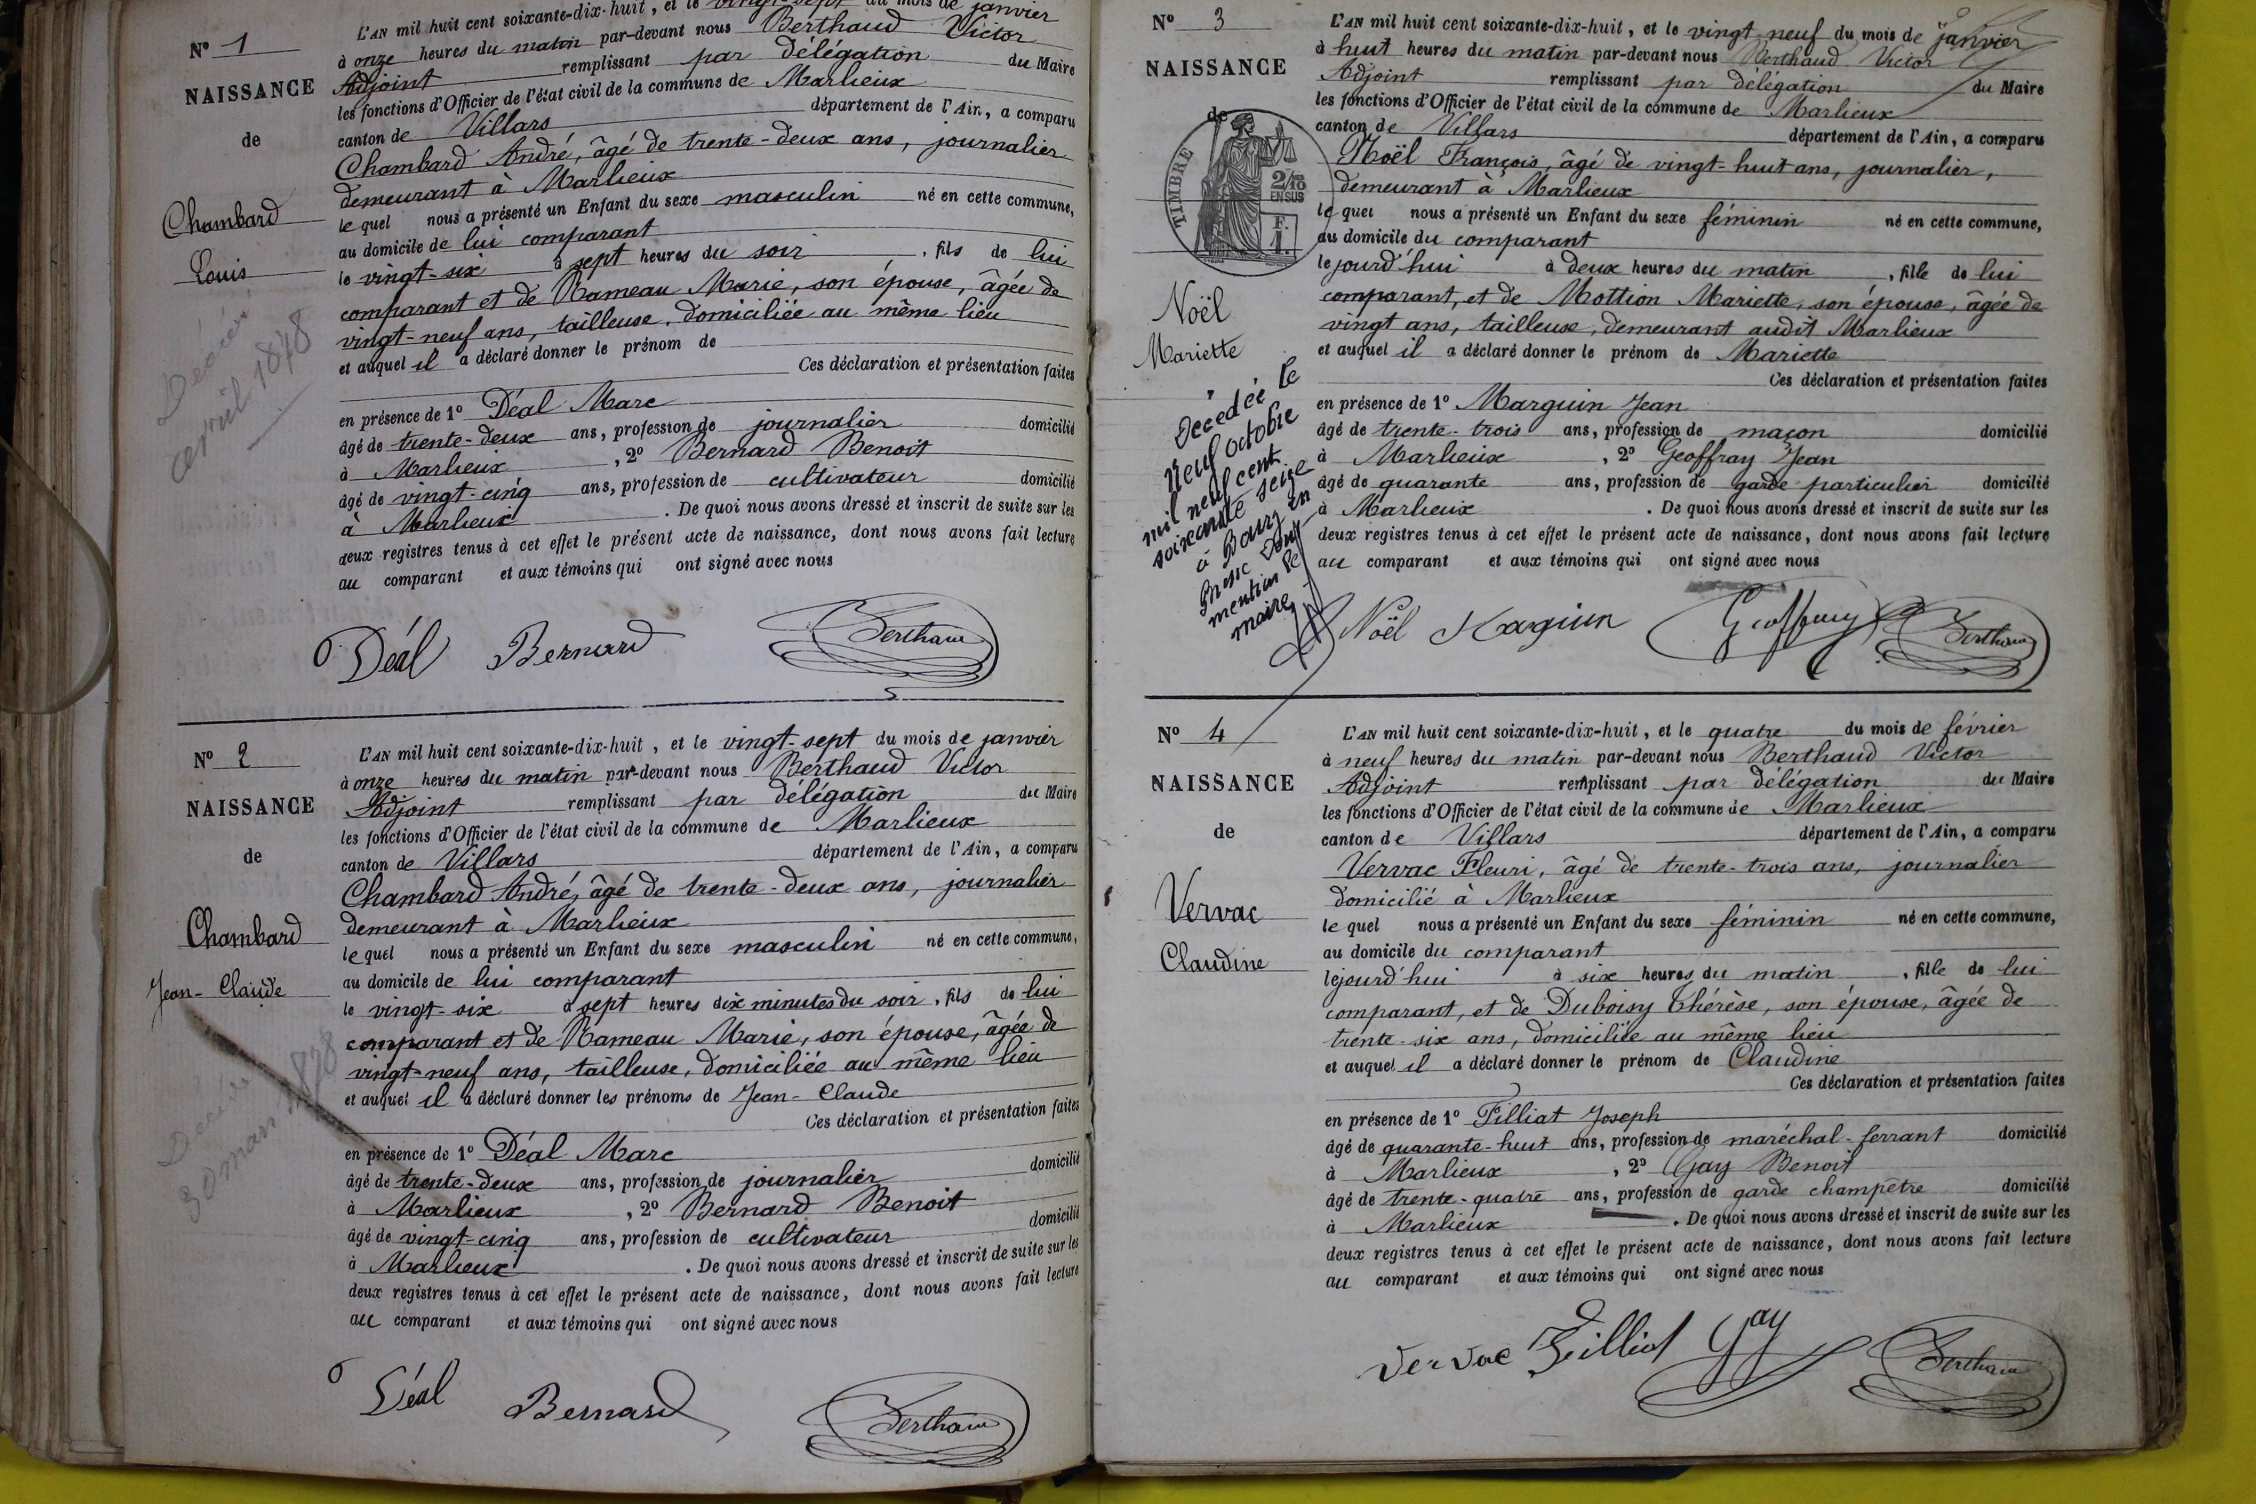 N° 1
NAISSANCE
de
Chambard
Louis
Décédé
avril 1878
L'AN mil huit cent soixante-dix-huit, et le vingt-sept du mois de janvier
à onze heures du matin par-devant nous Berthaud Victor
Adjoint remplissant par délégation du Maire
les fonctions d'Officier de l'état civil de la commune de Marlieux
canton de Villars département de l'Ain, a comparu
Chambard André, âgé de trente-deux ans, journalier
demeurant à Marlieux
le quel nous a présenté un Enfant du sexe masculin né en cette commune,
au domicile de lui comparant
le vingt-six à sept heures du soir, fils de lui
comparant et de Rameau Marie, son épouse, âgée de
vingt-neuf ans, tailleuse, domiciliée au même lieu
et auquel il a déclaré donner le prénom de
Ces déclaration et présentation faites
en présence de 1° Déal Marc
âgé de trente-deux ans, profession de journalier domicilié
à Marlieux, 2° Bernard Benoit
âgé de vingt-cinq ans, profession de cultivateur domicilié
à Marlieux. De quoi nous avons dressé et inscrit de suite sur les
deux registres tenus à cet effet le présent acte de naissance, dont nous avons fait lecture
au comparant et aux témoins qui ont signé avec nous
Déal Bernard Berthaud
N° 2
NAISSANCE
de
Chambard
Jean-Claude
Décédé
30 mars 1878
L'AN mil huit cent soixante-dix-huit, et le vingt-sept du mois de janvier
à onze heures du matin par-devant nous Berthaud Victor
Adjoint remplissant par délégation du Maire
les fonctions d'Officier de l'état civil de la commune de Marlieux
canton de Villars département de l'Ain, a comparu
Chambard André, âgé de trente-deux ans, journalier
demeurant à Marlieux
le quel nous a présenté un Enfant du sexe masculin né en cette commune,
au domicile de lui comparant
le vingt-six à sept heures dix minutes du soir, fils de lui
comparant et de Rameau Marie, son épouse, âgée de
vingt-neuf ans, tailleuse, domiciliée au même lieu
et auquel il a déclaré donner les prénoms de Jean-Claude
Ces déclaration et présentation faites
en présence de 1° Déal Marc
âgé de trente-deux ans, profession de journalier domicilié
à Marlieux, 2° Bernard Benoit
âgé de vingt-cinq ans, profession de cultivateur domicilié
à Marlieux. De quoi nous avons dressé et inscrit de suite sur les
deux registres tenus à cet effet le présent acte de naissance, dont nous avons fait lecture
au comparant et aux témoins qui ont signé avec nous
Déal Bernard Berthaud
N° 3
NAISSANCE
de
TIMBRE
2/10
EN SUS
F.
1.
Noël
Mariette
Décédée le
neuf octobre
mil neuf cent
soixante seize
à Bourg en
Bresse Dont
mention le
maire
L'AN mil huit cent soixante-dix-huit, et le vingt-neuf du mois de janvier
à huit heures du matin par-devant nous Berthaud Victor
Adjoint remplissant par délégation du Maire
les fonctions d'Officier de l'état civil de la commune de Marlieux
canton de Villars département de l'Ain, a comparu
Noël François, âgé de vingt-huit ans, journalier,
demeurant à Marlieux
le quel nous a présenté un Enfant du sexe féminin né en cette commune,
au domicile du comparant
lejourd'hui à deux heures du matin, fille de lui
comparant, et de Mottion Mariette, son épouse, âgée de
vingt ans, tailleuse, demeurant audit Marlieux
et auquel il a déclaré donner le prénom de Mariette
Ces déclaration et présentation faites
en présence de 1° Marguin Jean
âgé de trente-trois ans, profession de maçon domicilié
à Marlieux, 2° Geoffray Jean
âgé de quarante ans, profession de garde particulier domicilié
à Marlieux. De quoi nous avons dressé et inscrit de suite sur les
deux registres tenus à cet effet le présent acte de naissance, dont nous avons fait lecture
au comparant et aux témoins qui ont signé avec nous
Noël Marguin Geoffray Berthaud
N° 4
NAISSANCE
de
Vervac
Claudine
L'AN mil huit cent soixante-dix-huit, et le quatre du mois de février
à neuf heures du matin par-devant nous Berthaud Victor
Adjoint remplissant par délégation du Maire
les fonctions d'Officier de l'état civil de la commune de Marlieux
canton de Villars département de l'Ain, a comparu
Vervac Fleuri, âgé de trente-trois ans, journalier
domicilié à Marlieux
le quel nous a présenté un Enfant du sexe féminin né en cette commune,
au domicile du comparant
lejourd'hui à six heures du matin, fille de lui
comparant, et de Duboisy Thérèse, son épouse, âgée de
trente-six ans, domiciliée au même lieu
et auquel il a déclaré donner le prénom de Claudine
Ces déclaration et présentation faites
en présence de 1° Filliat Joseph
âgé de quarante-huit ans, profession de maréchal-ferrant domicilié
à Marlieux, 2° Gay Benoit
âgé de trente-quatre ans, profession de garde champêtre domicilié
à Marlieux. De quoi nous avons dressé et inscrit de suite sur les
deux registres tenus à cet effet le présent acte de naissance, dont nous avons fait lecture
au comparant et aux témoins qui ont signé avec nous
Vervac Filliat Gay Berthaud